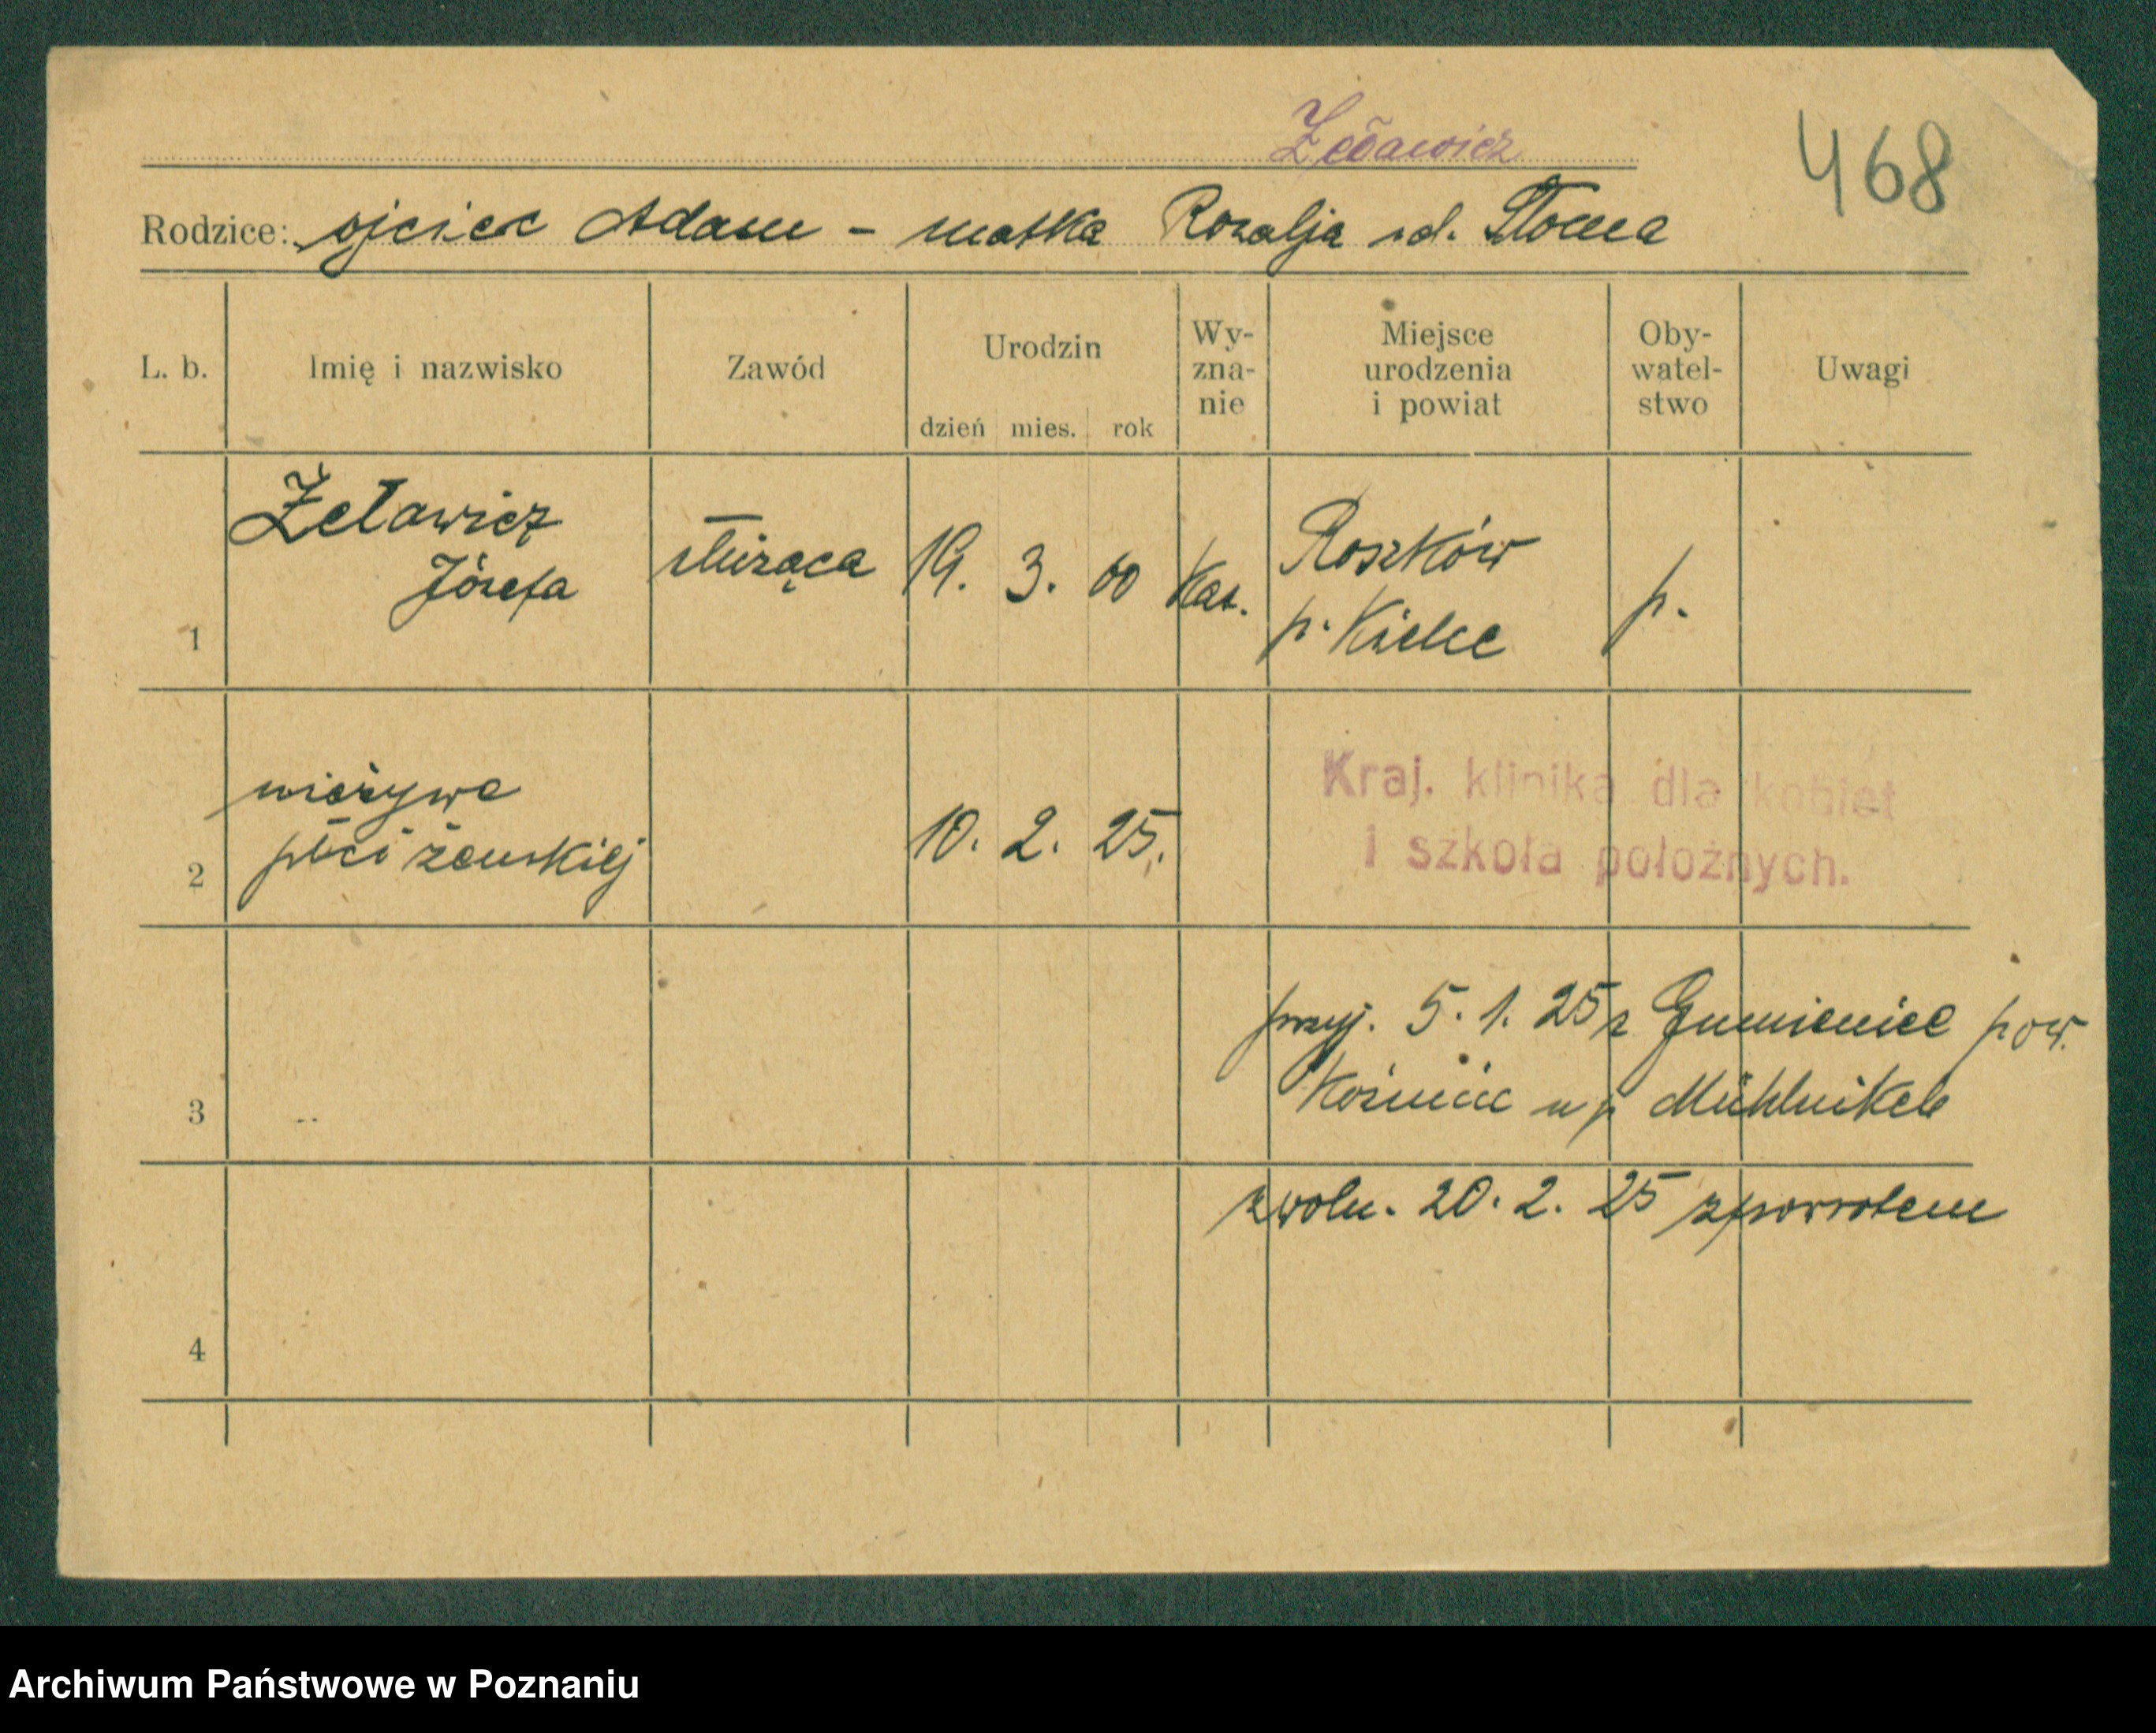 Żeławicz
468
Rodzice: ojciec Adam - matka Rozalja zd. Słoma
L. b. Imię i nazwisko Zawód Urodzin dzień mies. rok Wy-zna-nie Miejsce urodzenia i powiat Oby-watel-stwo Uwagi
1 Żeławicz Józefa służąca 19. 3. 00 kat. Roszków p. Kielce p.
2 nieżywe płci żeńskiej 10. 2. 25.
Kraj. klinika dla kobiet
i szkoła położnych.
przyj. 5. 1. 25 z Gumienice pow.
3 Koźmin u p
zwoln. 20. 2. 25 zpowrotem
4
Archiwum Państwowe w Poznaniu